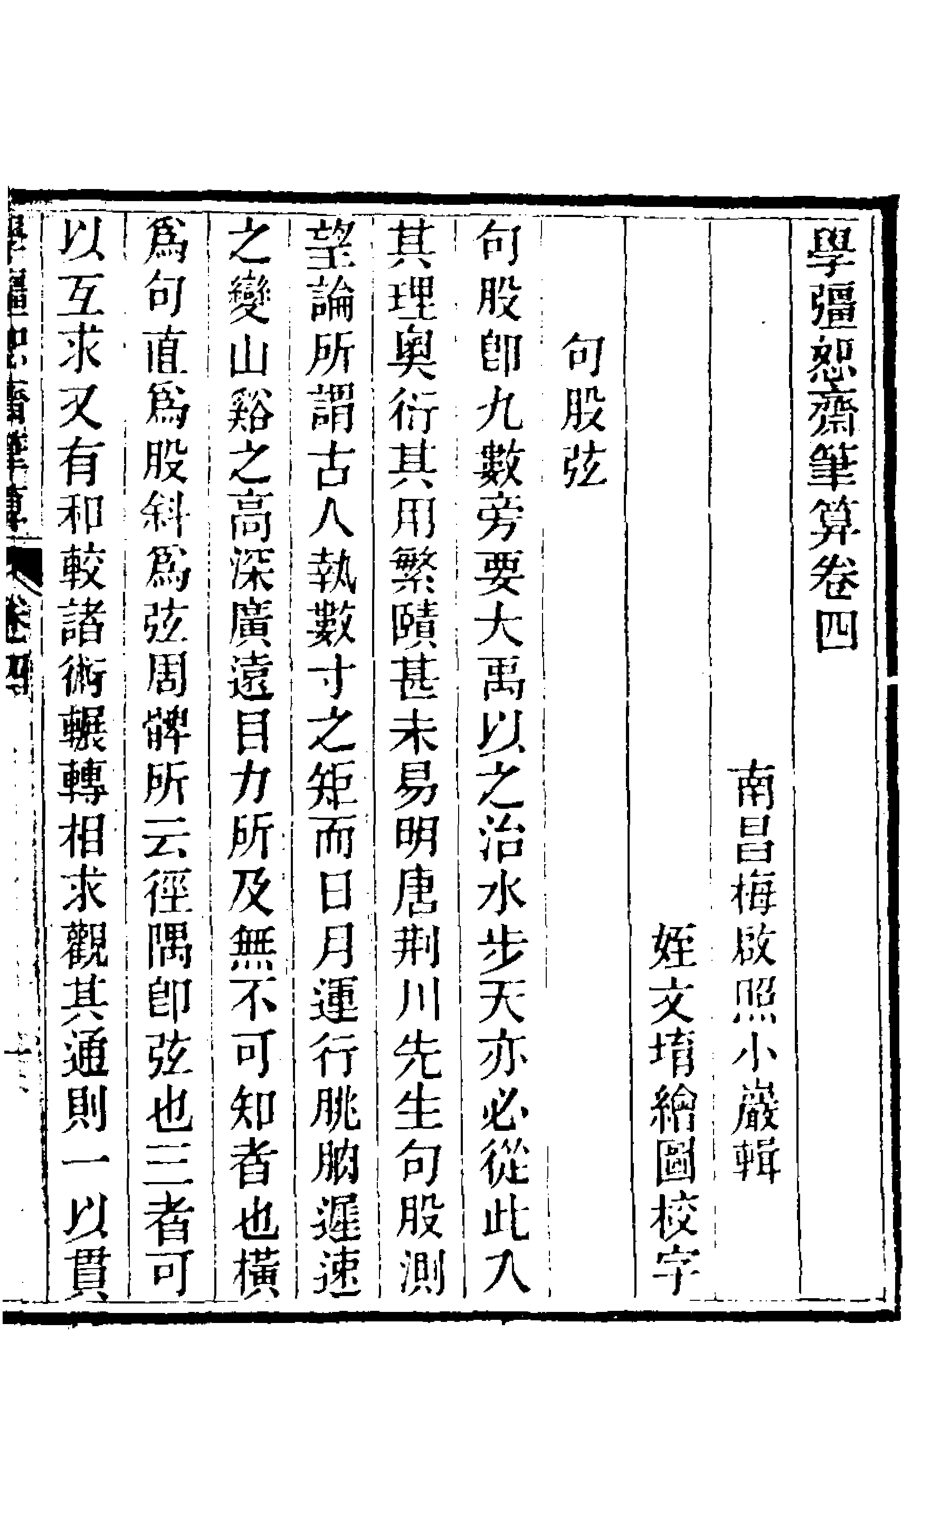 學彊恕齋筆算卷四
南昌梅啟照小巖輯
姪文堉繪圖校字
句股弦
句股卽九數旁要大禹以之治水步天亦必從此入
其理奧衍其用繁賾甚未易明唐荆川先生句股測
望論所謂古人執數寸之矩而日月運行朓朒遲速
之變山谿之高深廣遠目力所及無不可知者也橫
爲句直爲股斜爲弦周髀所云徑隅卽弦也三者可
以互求又有和較諸術輾轉相求觀其通則一以貫
學彊恕齋筆算 卷四 一